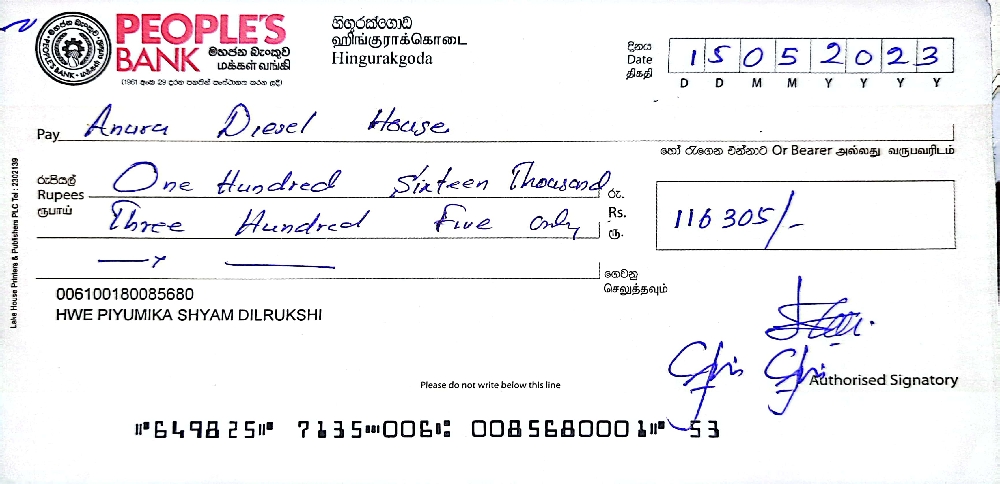 මහජන බැංකුව
PEOPLE'S BANK - மக்கள் வங்கி
PEOPLE'S
BANK මහජන බැංකුව
மக்கள் வங்கி
(1961 අංක 29 දරන පනතින් සංස්ථාගත කරන ලදි)
හිඟුරක්ගොඩ
ஹிங்குராக்கொடை
Hingurakgoda
දිනය
Date
திகதி
15052023
D D M M Y Y Y Y
Pay Anura Diesel House
හෝ රැගෙන එන්නාට Or Bearer அல்லது வருபவரிடம்
රුපියල්
Rupees
ரூபாய்
One Hundred Sixteen Thousand
Three Hundred Five only
රු.
Rs.
ரூ.
116 305/-
ගෙවනු
செலுத்தவும்
006100180085680
HWE PIYUMIKA SHYAM DILRUKSHI
Authorised Signatory
Please do not write below this line
⑈649825⑈ 7135⑉006⑆ 0085680001⑈ 53
Lake House Printers & Publishers PLC Tel : 2302139